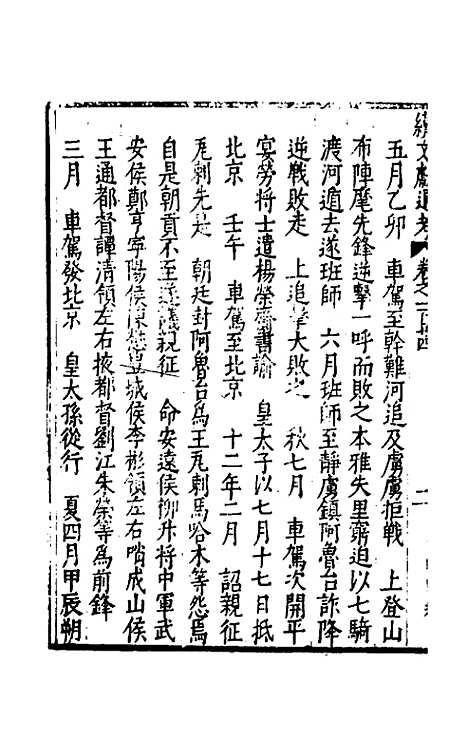 續文獻通考 卷之一百四
五月乙卯 車駕至幹難河追及虜虜拒戰 上登山
布陣麾先鋒逆擊一呼而敗之本雅失里窮迫以七騎
渡河遁去遂班師 六月班師至靜虜鎮阿魯台詐降
逆戰敗走 上追擊大敗之 秋七月 車駕次開平
宴勞將士遣楊榮齎書諭 皇太子以七月十七日抵
北京 壬午 車駕至北京 十二年二月 詔親征
瓦剌先是 朝廷封阿魯台為王瓦剌馬哈木等怨焉
自是朝貢不至遂議親征 命安遠侯柳升將中軍武
安侯鄭亨寧陽侯陳懋豐城侯李彬領左右哨成山侯
王通都督譚清領左右掖都督劉江朱榮等為前鋒
三月 車駕發北京 皇太孫從行 夏四月甲辰朔